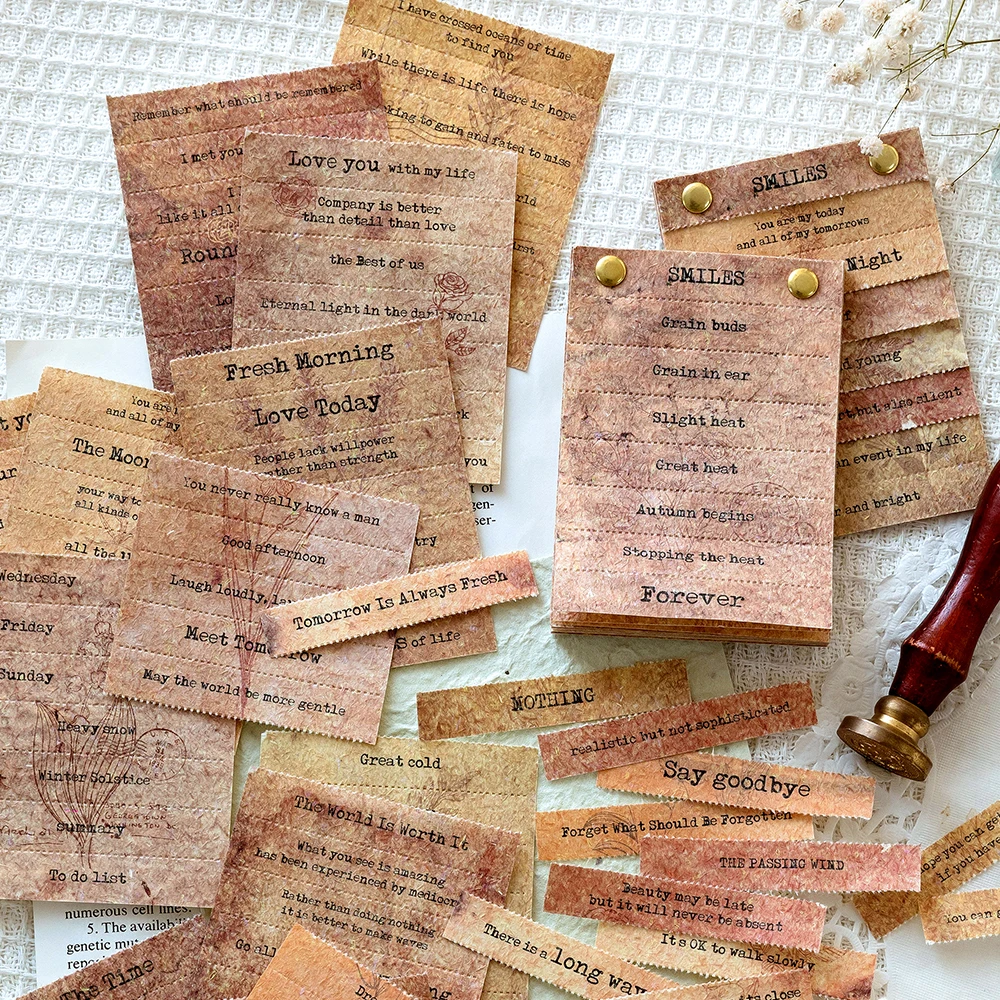 I have crossed oceans of time
to find you
While there is life there is hope
king to gain and fated to miss
Remember what should be remembered
I met you
I
like it all
Roun
Lo
Love you with my life
Company is better
than detail than love
the Best of us
Eternal light in the dark world
you
Fresh Morning
Love Today
People lack willpower
rather than strength
try
s of life
You are
and all of my
The Moon
your way to
all kinds o
all the
You never really know a man
Good afternoon
Laugh loudly, la
Meet Tomorrow
May the world be more gentle
Tomorrow Is Always Fresh
Wednesday
Friday
Sunday
Heavy snow
Winter Solstice
summary
To do list
SMILES
You are my today
and all of my tomorrows
Night
d young
et but also silent
an event in my life
r and bright
SMILES
Grain buds
Grain in ear
Slight heat
Great heat
Autumn begins
Stopping the heat
Forever
NOTHING
realistic but not sophisticated
Say goodbye
Forget What Should Be Forgotten
THE PASSING WIND
Beauty may be late
but it will never be absent
It's OK to walk slowly
There is a long way
its close
Great cold
The World Is Worth It
What you see is amazing
has been experienced by mediocr
Rather than doing nothing
it is better to make waves
Go all
ng
The Time
hope you can ge
if you have
You can g
numerous cell lines.
5. The availabi
genetic mut